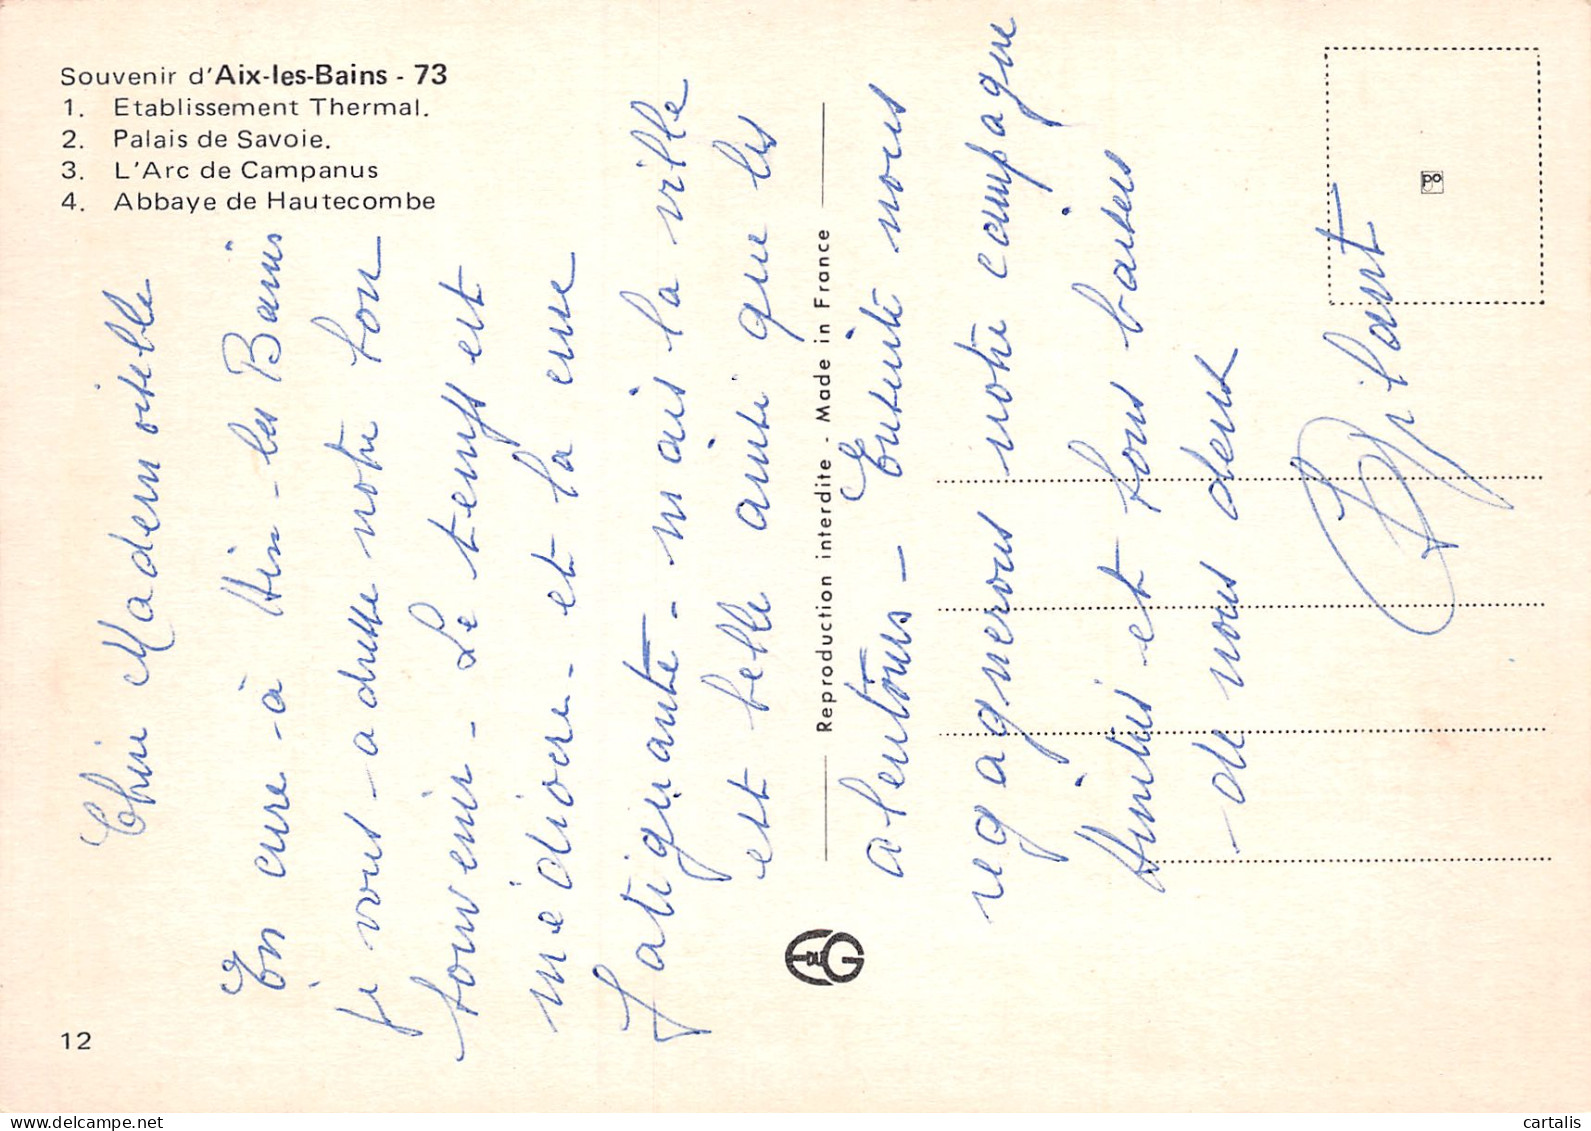 Souvenir d'Aix-les-Bains - 73
1. Etablissement Thermal.
2. Palais de Savoie.
3. L'Arc de Campanus
4. Abbaye de Hautecombe
Chère Mademoiselle
En cure - à Aix-les Bains
je vous - adresse notre bon
souvenir - Le temps est
médiocre - et la cure
fatiguante - mais la ville
est belle ainsi que les
alentours - Ensuite nous
regagnerons notre campagne
Amitiés et bons baisers
de nous deux
Reproduction interdite - Made in France
12
cartalis www.delcampe.net